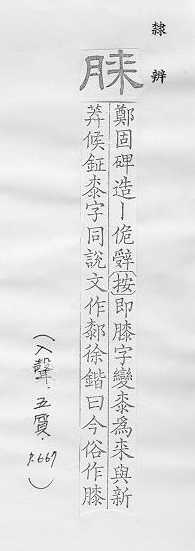 隸辨
䏮
鄭固碑造丨佹辭(按即膝字變桼為来與新
莽候鉦桼字同說文作厀徐鍇曰今俗作膝
(入聲.五質.
P.667)